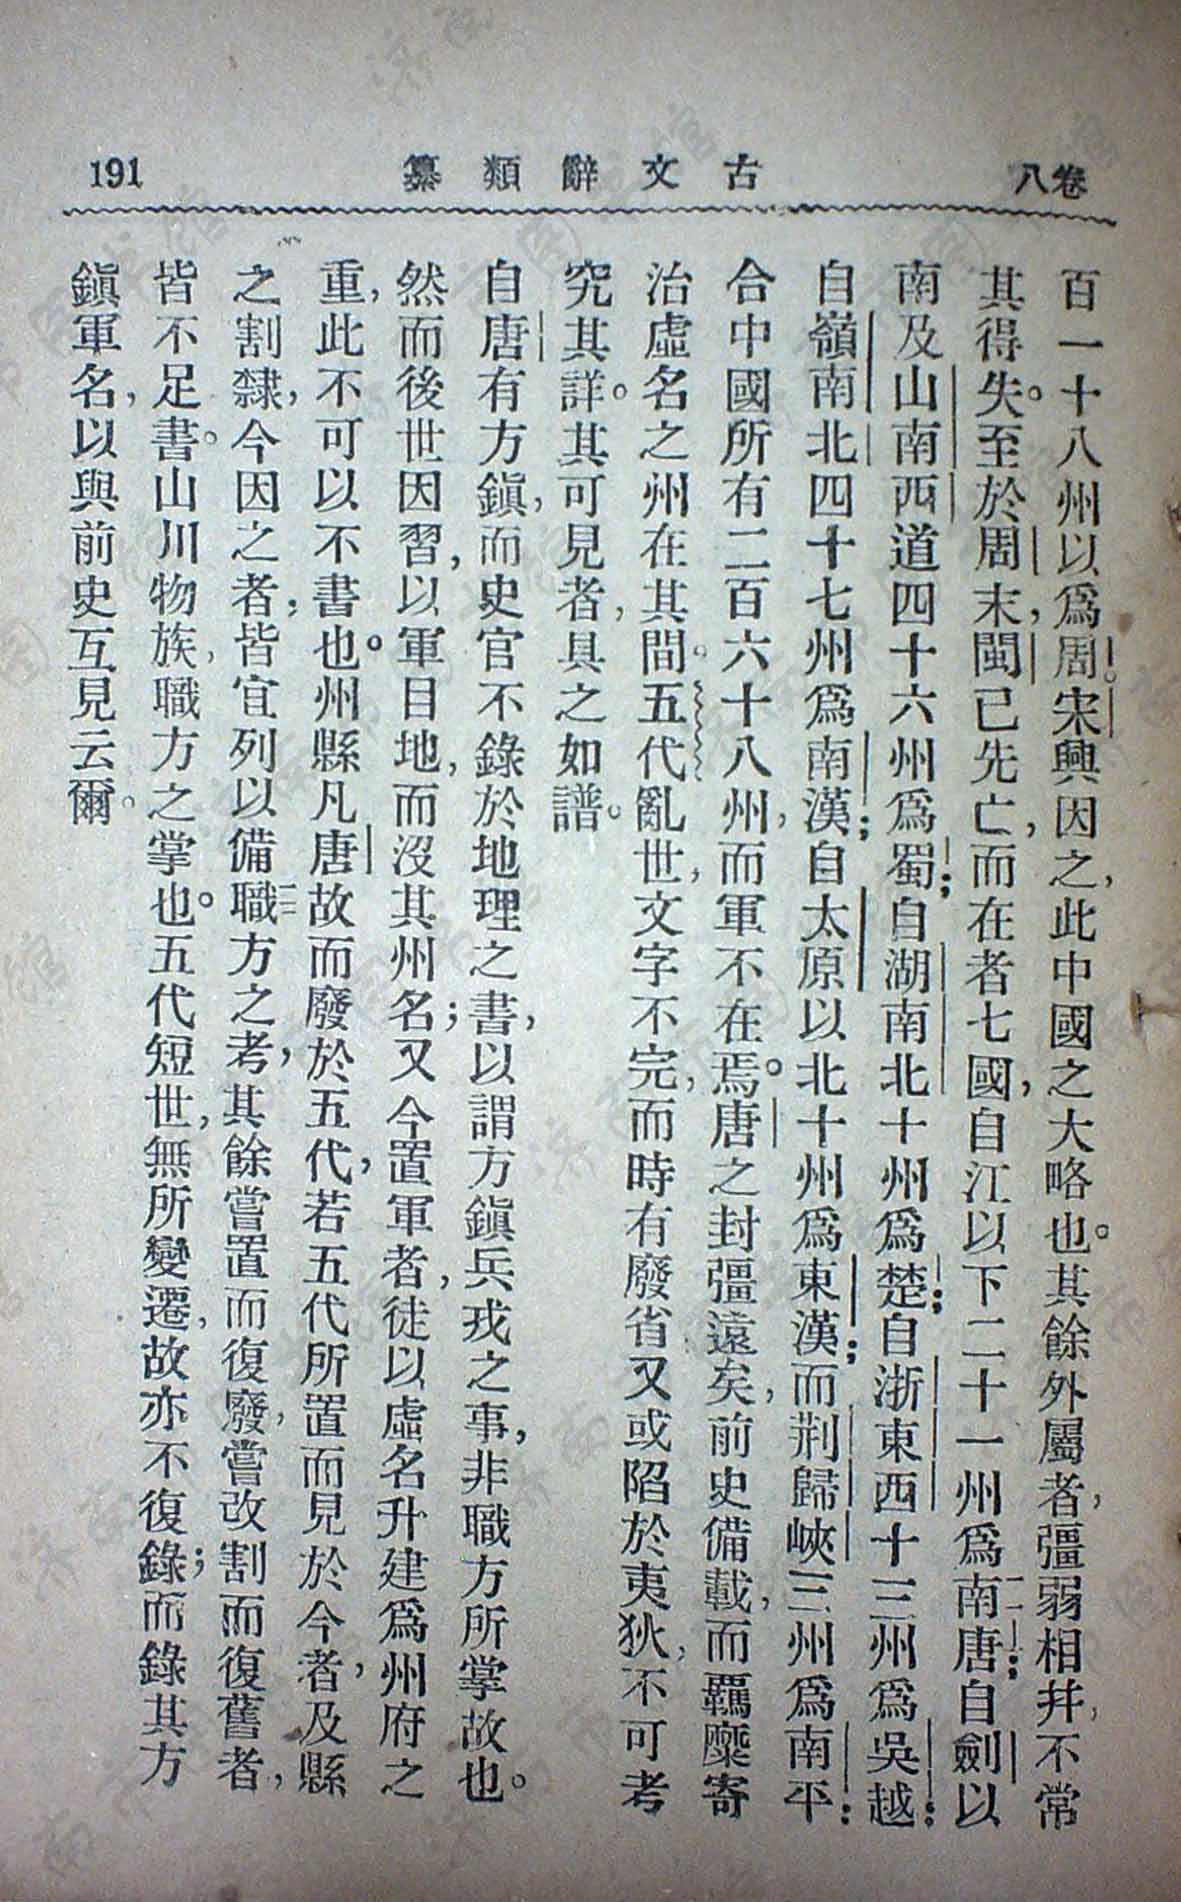 卷八
古文辭類纂
191
百一十八州以爲周。宋興因之，此中國之大略也。其餘外屬者，彊弱相幷，不常
其得失。至於周末，閩已先亡，而在者七國，自江以下二十一州爲南唐；自劍以
南及山南西道四十六州爲蜀；自湖南北十州爲楚；自浙東西十三州爲吳越；
自嶺南北四十七州爲南漢；自太原以北十州爲東漢；而荆歸峽三州爲南平；
合中國所有二百六十八州，而軍不在焉。唐之封彊遠矣，前史備載，而羈縻寄
治虛名之州在其間。五代亂世，文字不完，而時有廢省又或陷於夷狄，不可考
究其詳。其可見者，具之如譜。
自唐有方鎭，而史官不錄於地理之書，以謂方鎭兵戎之事，非職方所掌故也。
然而後世因習，以軍目地，而沒其州名；又今置軍者，徒以虛名升建爲州府之
重，此不可以不書也。州縣凡唐故而廢於五代，若五代所置而見於今者，及縣
之割隸，今因之者，皆宜列以備職方之考，其餘嘗置而復廢，嘗改割而復舊者，
皆不足書。山川物族，職方之掌也。五代短世，無所變遷，故亦不復錄；而錄其方
鎭軍名，以與前史互見云爾。